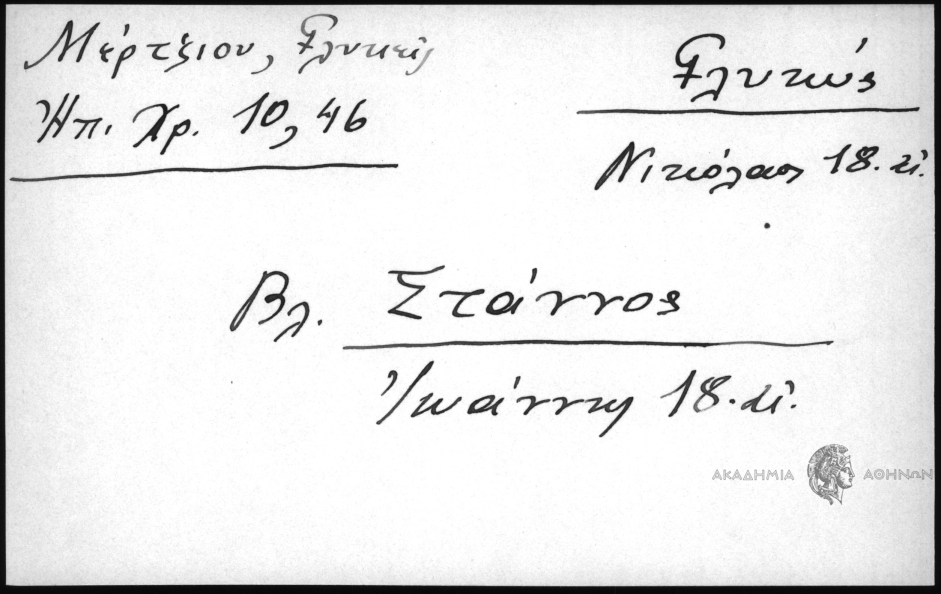 Μέρτζιου, Γλυκεῖς
Ἠπ. Χρ. 10, 46
Γλυκύς
Νικόλαος 18. αἰ.
Βλ. Στάννος
Ἰωάννης 18. αἰ.
ΑΚΑΔΗΜΙΑ ΑΘΗΝΩΝ